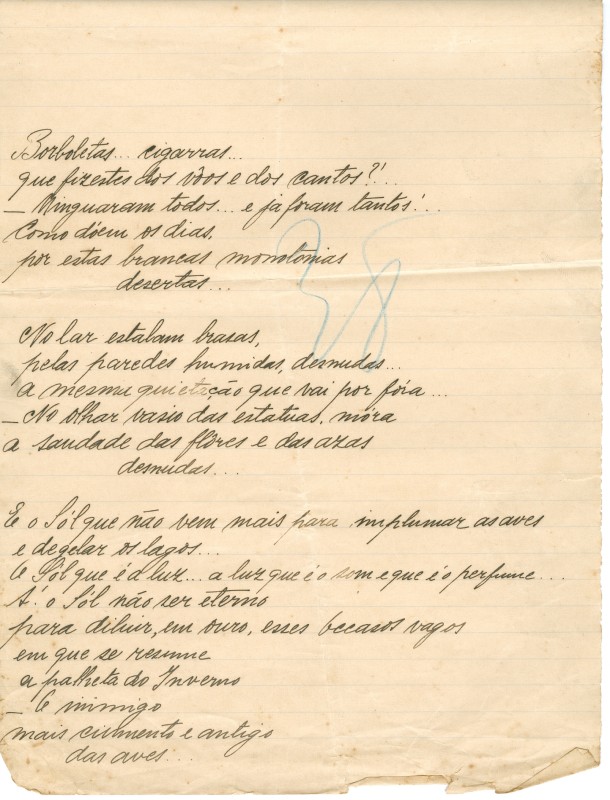 Borboletas... cigarras...
que fizestes dos vôos e dos cantos?!...
— Minguaram todos... e já foram tantos!...
Como dóem os dias,
por estas brancas monotonias
desertas...
38
No lar estalam brasas,
pelas paredes humidas, desnudas...
a mesma quietação que vai por fóra...
— No olhar vasio das estatuas, móra
a saudade das flôres e das azas
desnudas...
E o Sól que não vem mais para implumar as aves
e degelar os lagos...
O Sól que é a luz... a luz que é o som e que é o perfume...
A! o Sól não ser eterno
para diluir, em ouro, esses occasos vagos
em que se resume
a palheta do Inverno
— O inimigo
mais ciumento e antigo
das aves...